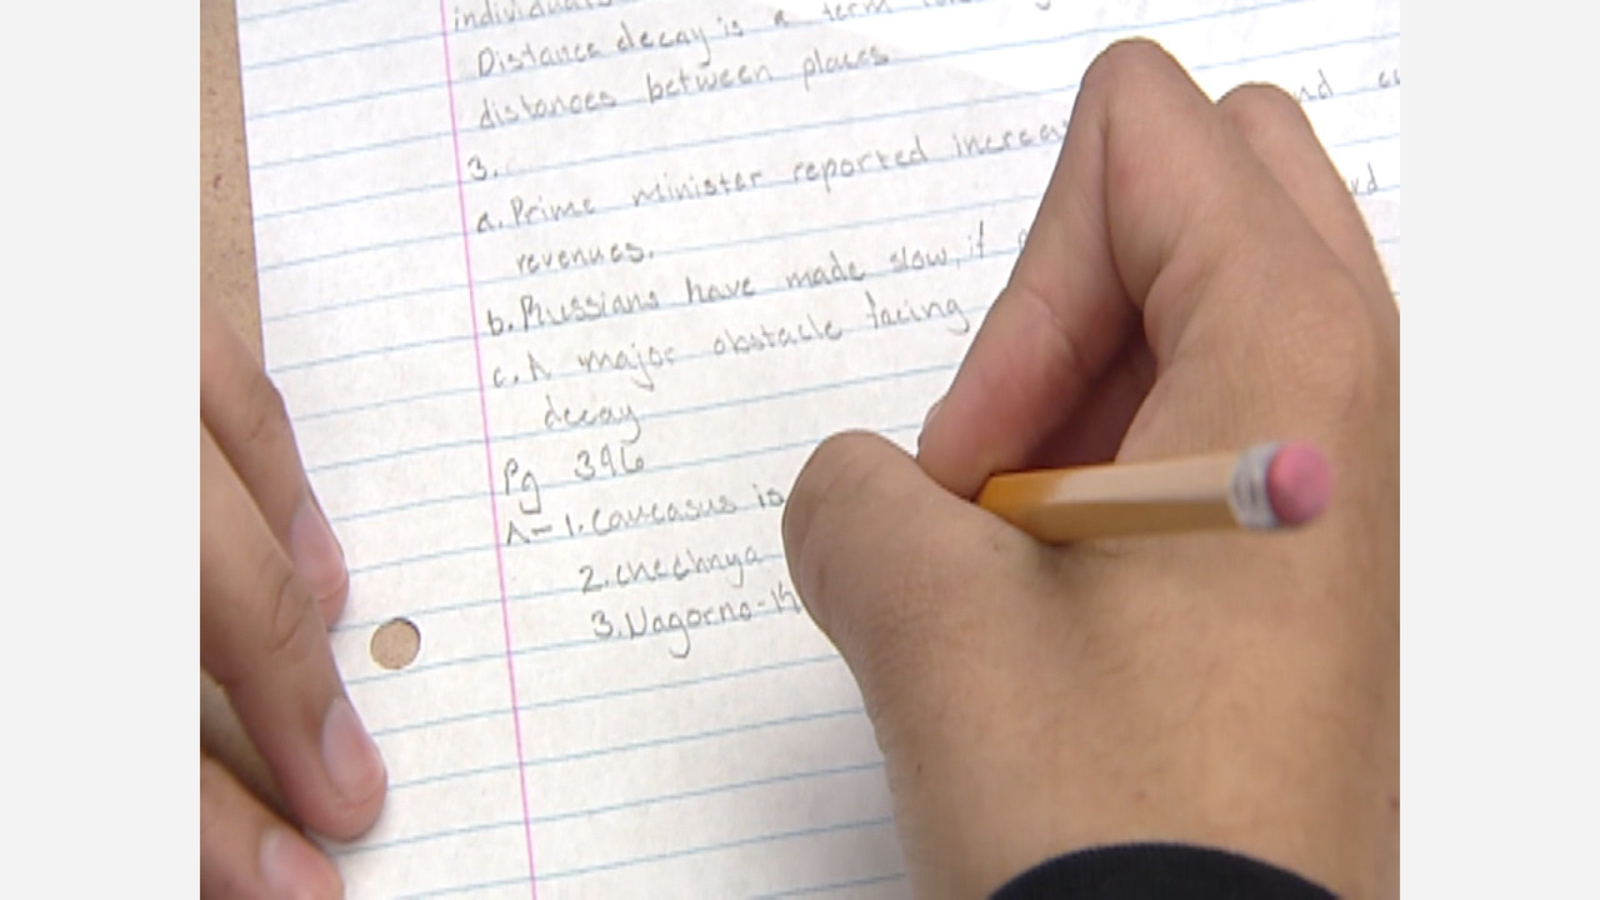 individuals
Distance decay is a term
distances between places
3.
a. Prime minister reported increas
revenues.
b. Russians have made slow, if
c. A major obstacle facing
decay
Pg 396
A-1. Caucasus is
2. chechnya
3. Nagorno-K